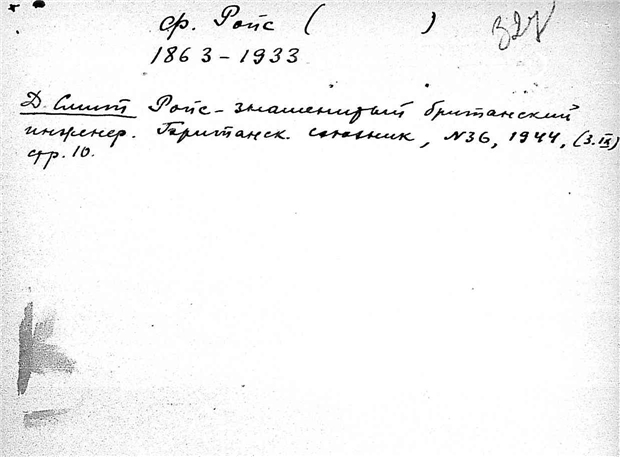 Ф. Ройс (            ) 327
1863-1933
Д. Смит Ройс - знаменитый британский
инженер. Британск. союзник, N36, 1944, (3.IX)
стр. 10.